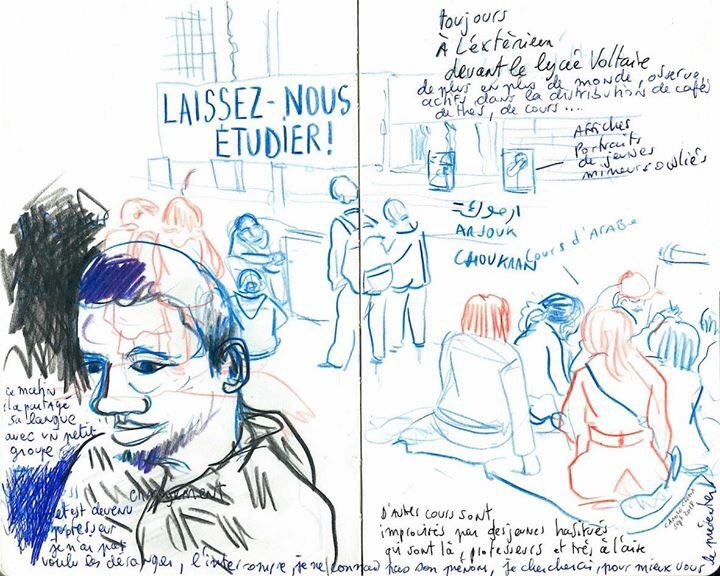 LAISSEZ-NOUS
ÉTUDIER!
toujours
À L'éxtérieur
devant le lycée Voltaire
de plus en plus de monde, observe,
actifs dans la distribution de cafés
de thés, de cours ....
Affiches
Portraits
de jeunes
mineurs oubliés
ارجوك =
ARJOUK
CHOUKRAN
Cours d'ARABE
ce matin
il a partagé
sa langue
avec un petit
groupe
changement
et est devenu
professeur
je n'ai pas
voulu les déranger, l'interrompre, je ne connais pas son prénom, je chercherai, pour mieux vous
le présenter
D'autres cours sont
improvisés par des jeunes habitués
qui sont là, professeurs et très à l'aise
sep. 2018